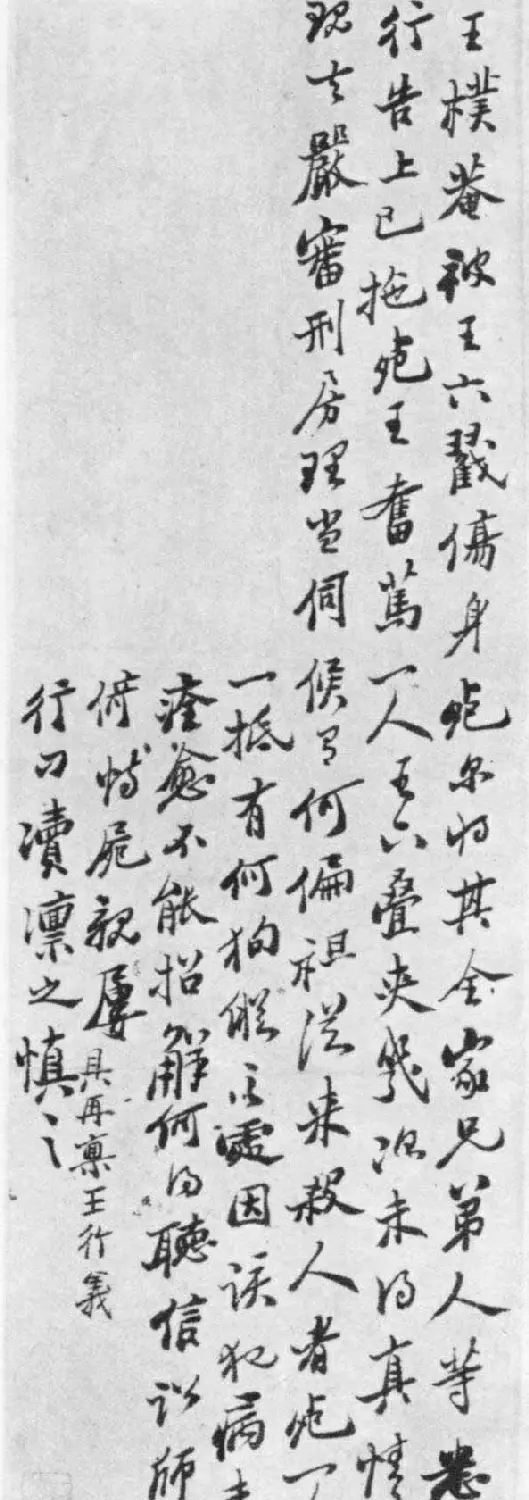 王樸菴被王六戳傷身死尔將其全家兄弟人等悉
行告上已拖死王奮篤一人王六疊夾幾次未得真情
現在嚴審刑房理当伺候有何偏袒從来殺人者死一
一抵有何狥縱之處因該犯病未
痊愈不能招解何得聽信訟師
俯恃屍親屢
行刁瀆凛之慎之
具再稟王行義